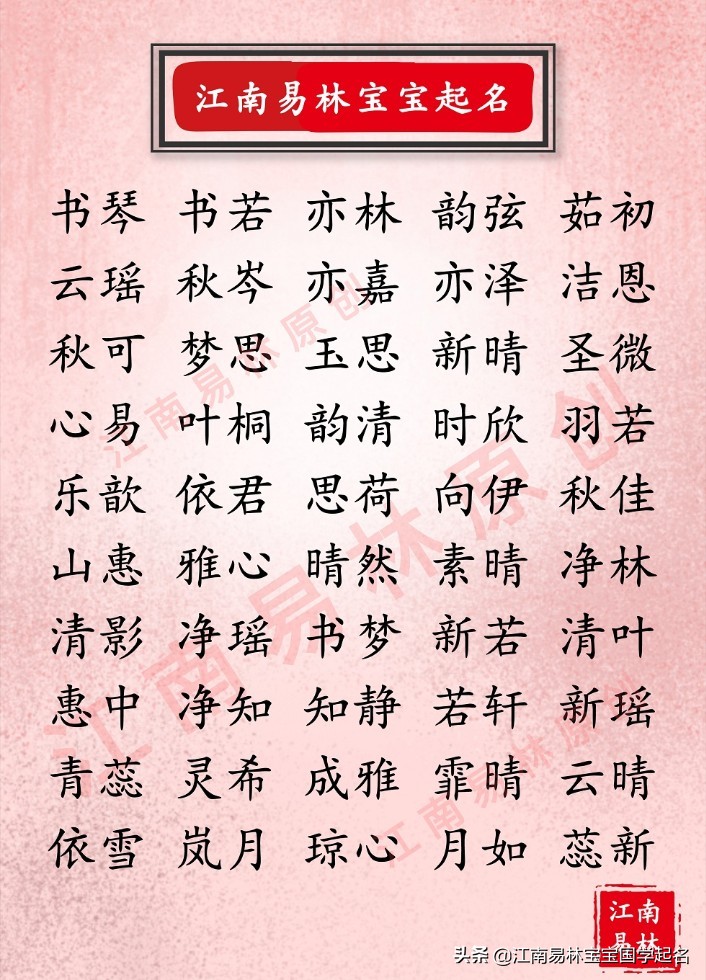 江南易林宝宝起名
书琴 书若 亦林 韵弦 茹初
云瑶 秋岑 亦嘉 亦泽 洁恩
秋可 梦思 玉思 新晴 圣微
心易 叶桐 韵清 时欣 羽若
乐歆 依君 思荷 向伊 秋佳
山惠 雅心 晴然 素晴 净林
清影 净瑶 书梦 新若 清叶
惠中 净知 知静 若轩 新瑶
青蕊 灵希 成雅 霏晴 云晴
依雪 岚月 琼心 月如 蕊新
江南易林原创
江南易林原创
江南易林原创
江南
易林
头条 @江南易林宝宝国学起名